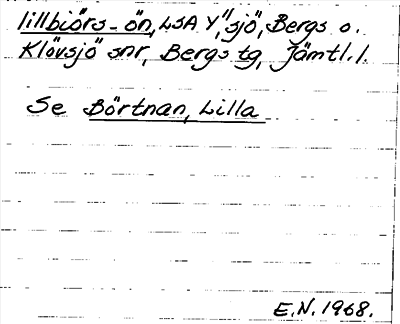 lillbiörs-ön, LSA Y", sjö, Bergs o.
Klövsjö snr, Bergs tg, Jämtl. l.
Se Börtnan, Lilla
E.N. 1968.